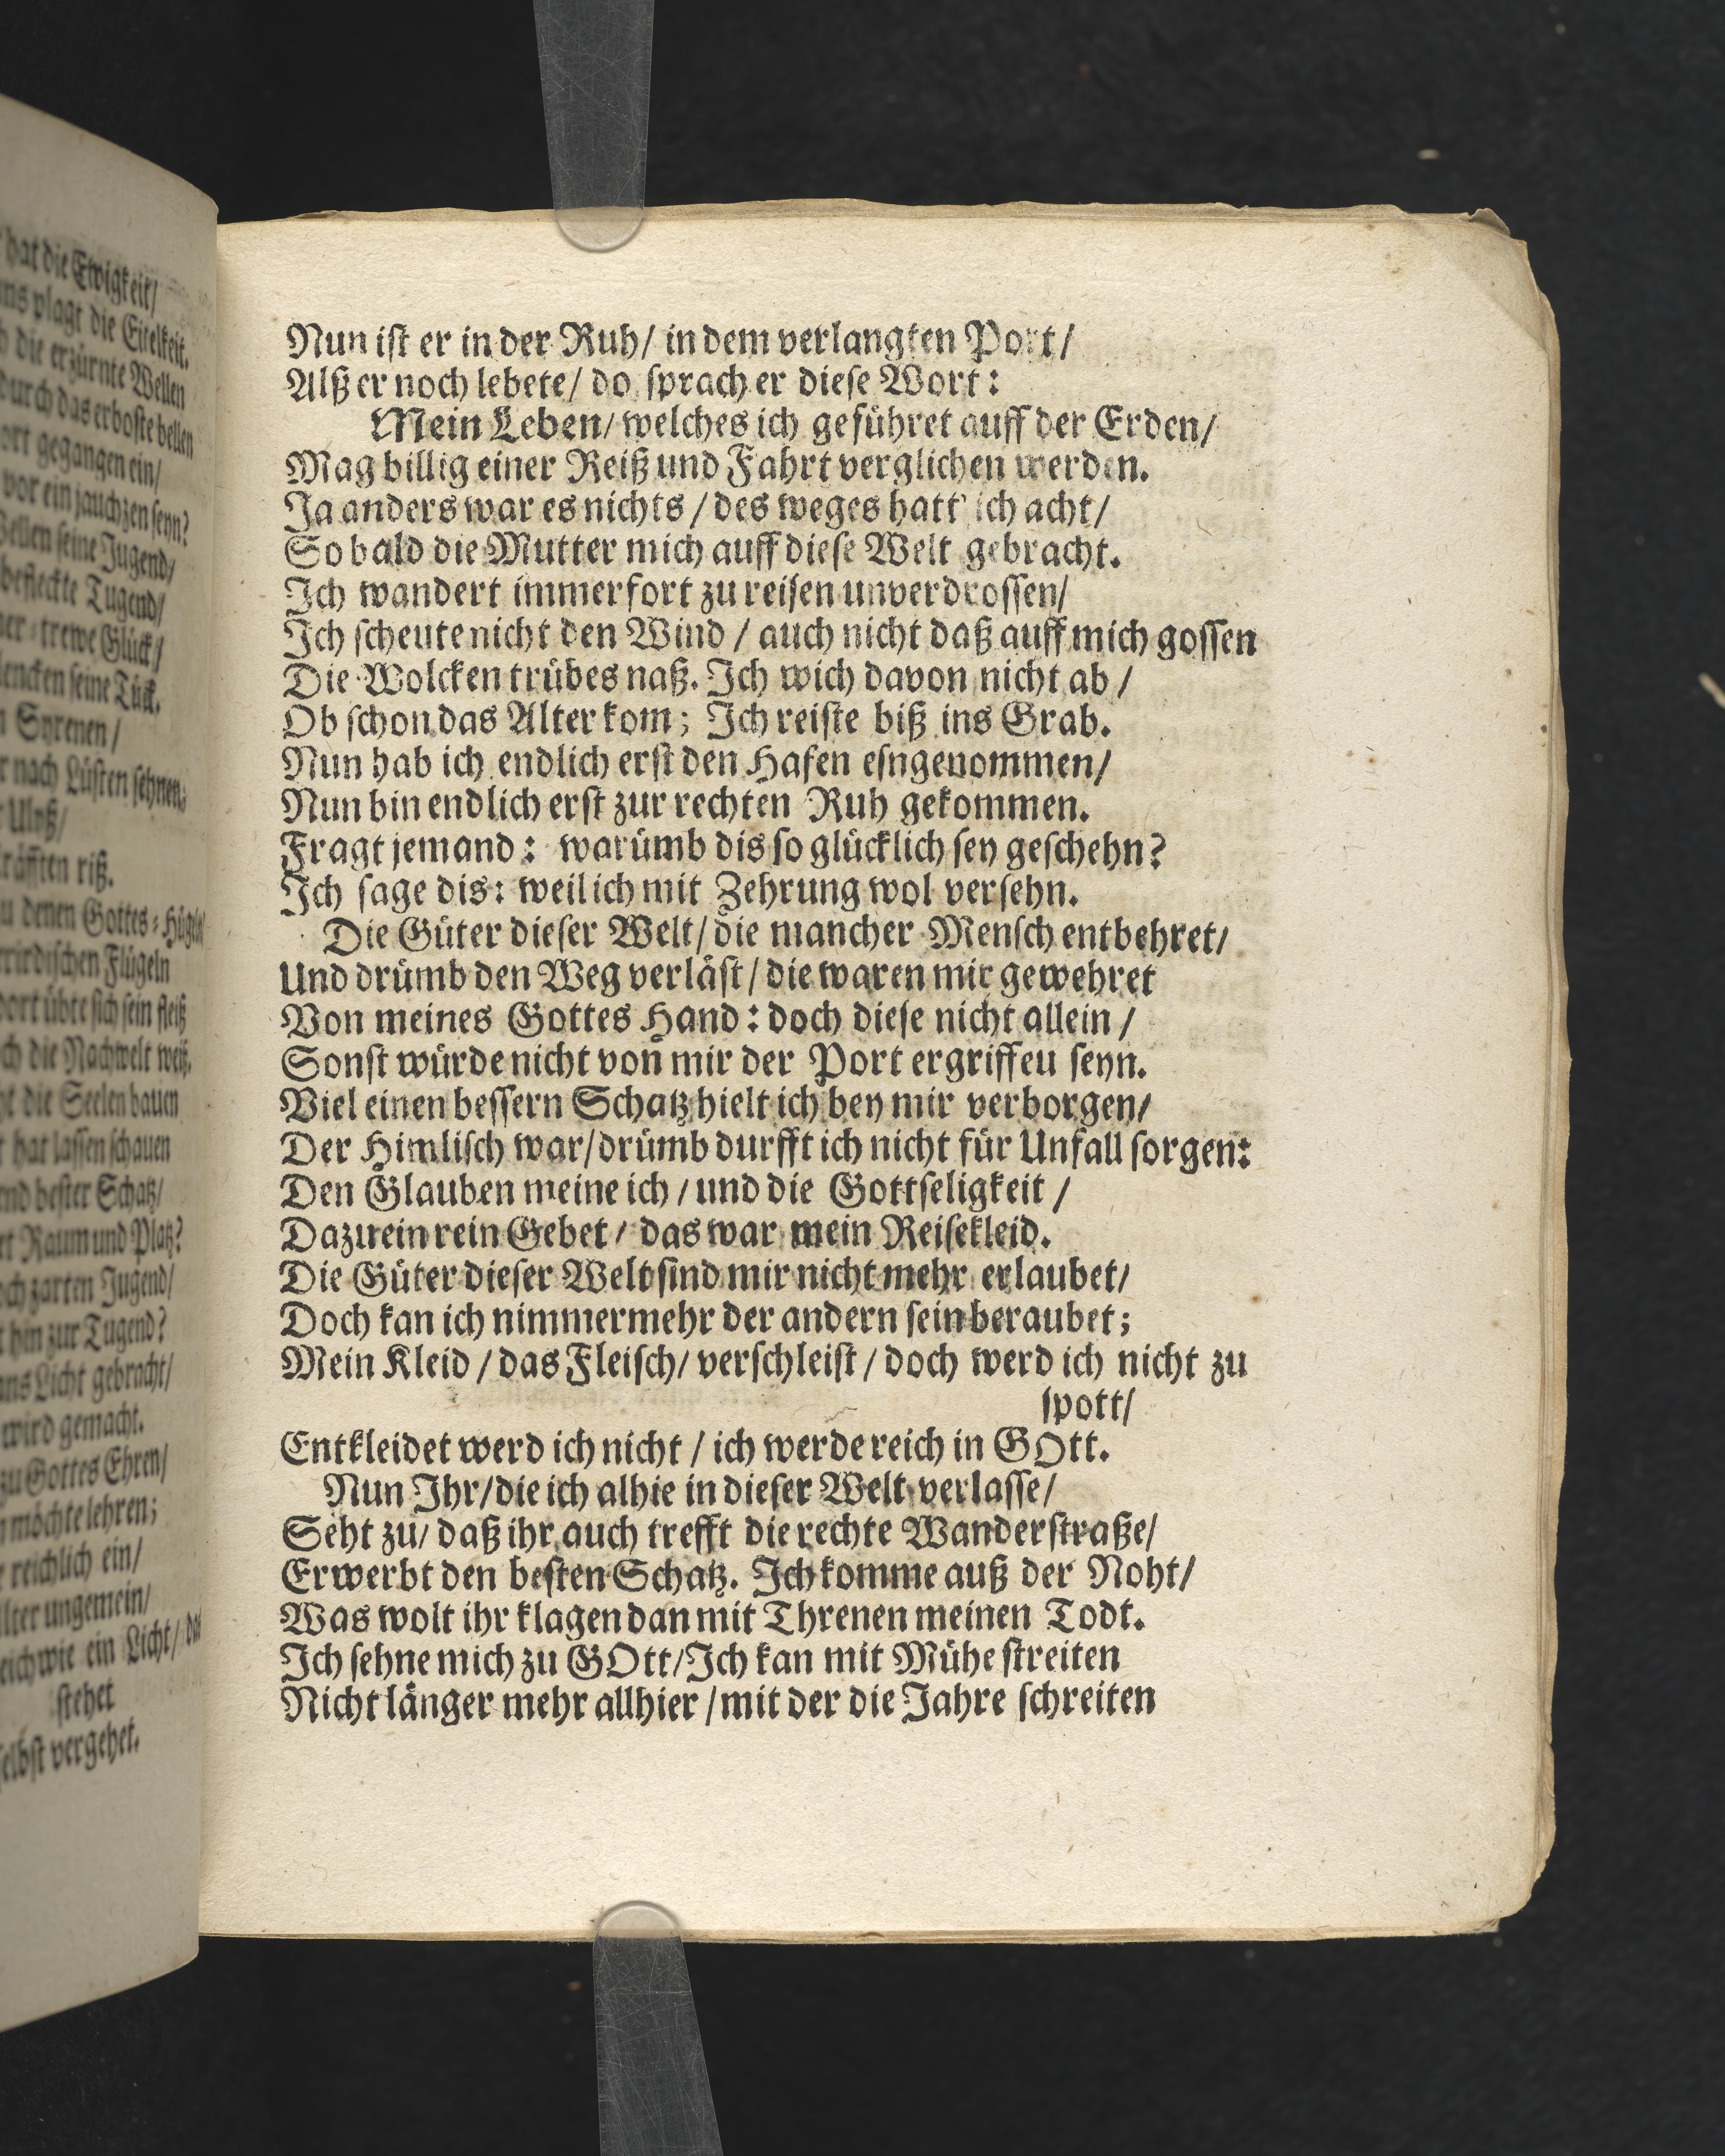 hat die Ewigkeit/
plagt die Eitelkeit.
die erzürnte Wellen
durch das erboste bellen
gegangen ein/
vor ein jauchzen seyn?
seine Jugend/
befleckte Tugend/
trewe Glück/
seine Tück.
Syrenen/
nach Lüsten sehnen;
Ulyß/
riß.
denen Gottes-Hügeln
Flügeln
übte sich sein fleiß
die Nachwelt weiß.
die Seelen bauen
hat lassen schauen
bester Schatz/
Raum und Platz?
zarten Jugend/
hin zur Tugend?
Licht gebracht/
wird gemacht.
zu Gottes Ehren/
möchte lehren;
reichlich ein/
ungemein/
wie ein Licht/ das
stehet
vergehet.
Nun ist er in der Ruh/ in dem verlangten Port/
Alß er noch lebete/ do sprach er diese Wort:
Mein Leben/ welches ich geführet auff der Erden/
Mag billig einer Reiß und Fahrt verglichen werden.
Ja anders war es nichts / des weges hatt' ich acht/
So bald die Mutter mich auff diese Welt gebracht.
Ich wandert immerfort zu reisen unverdrossen/
Ich scheute nicht den Wind / auch nicht daß auff mich gossen
Die Wolcken trübes naß. Ich wich davon nicht ab /
Ob schon das Alter kom; Ich reiste biß ins Grab.
Nun hab ich endlich erst den Hafen esngenommen/
Nun bin endlich erst zur rechten Ruh gekommen.
Fragt jemand: warümb dis so glücklich sey geschehn?
Ich sage dis: weil ich mit Zehrung wol versehn.
Die Güter dieser Welt/ die mancher Mensch entbehret/
Und drümb den Weg verläst / die waren mir gewehret
Von meines Gottes Hand: doch diese nicht allein /
Sonst würde nicht von mir der Port ergriffeu seyn.
Viel einen bessern Schatz hielt ich bey mir verborgen/
Der Himlisch war/ drümb durfft ich nicht für Unfall sorgen:
Den Glauben meine ich / und die Gottseligkeit /
Dazu ein rein Gebet / das war mein Reisekleid.
Die Güter dieser Welt sind mir nicht mehr erlaubet/
Doch kan ich nimmermehr der andern sein beraubet;
Mein Kleid / das Fleisch/ verschleist / doch werd ich nicht zu
spott/
Entkleidet werd ich nicht / ich werde reich in GOtt.
Nun Ihr/ die ich alhie in dieser Welt verlasse/
Seht zu/ daß ihr auch trefft die rechte Wanderstraße/
Erwerbt den besten Schatz. Ich komme auß der Noht/
Was wolt ihr klagen dan mit Threnen meinen Todt.
Ich sehne mich zu GOtt/ Ich kan mit Mühe streiten
Nicht länger mehr allhier / mit der die Jahre schreiten